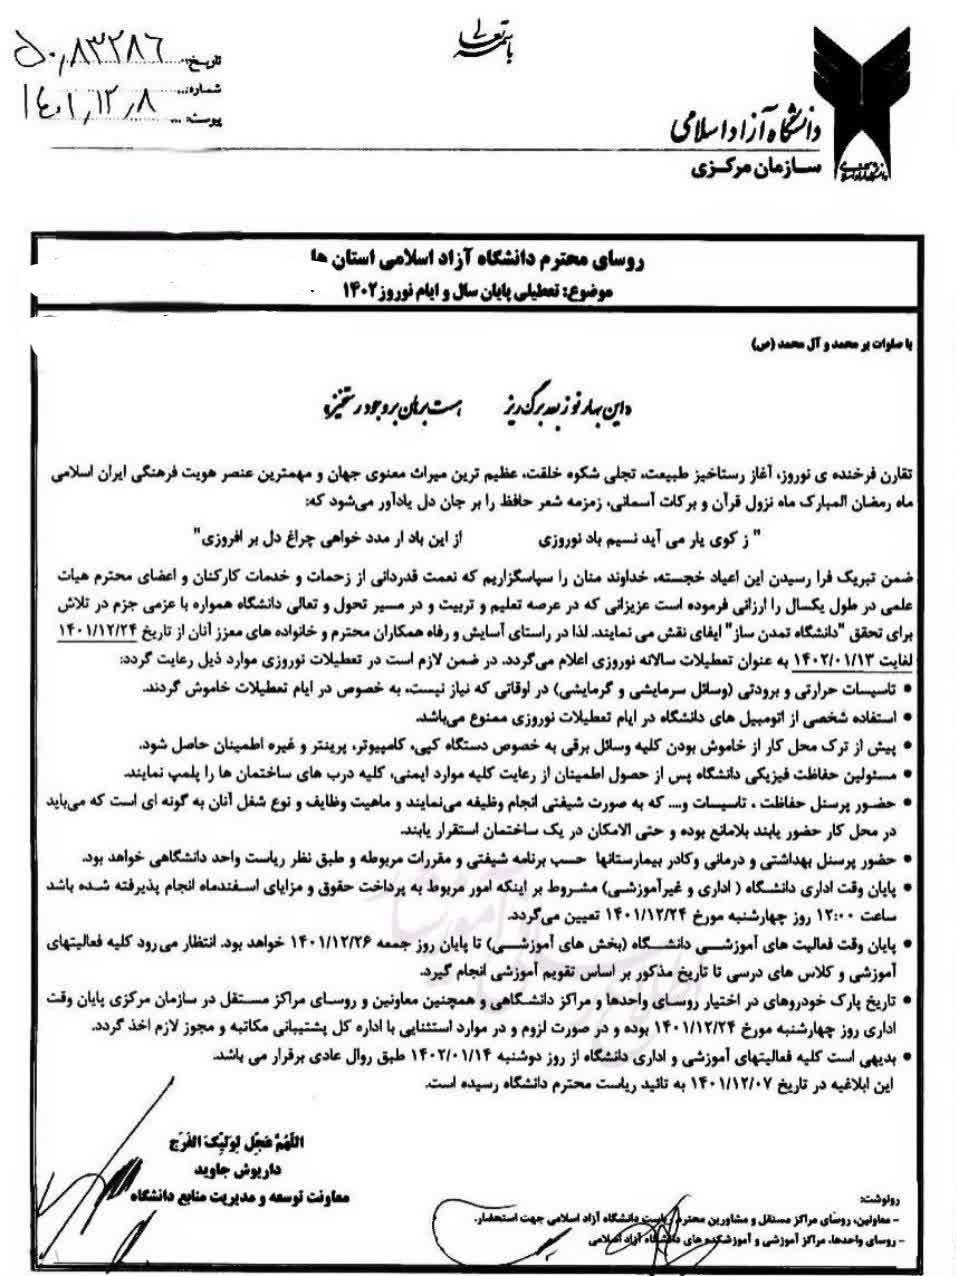 باسمه تعالی
دانشگاه آزاد اسلامی
سازمان مرکزی
دانشگاه آزاد اسلامی
تاریخ: ۵۰٫۸۳۲۸۶
شماره:
پیوست: ۱۴۰۱٫۱۲٫۸
روسای محترم دانشگاه آزاد اسلامی استان ها
موضوع: تعطیلی پایان سال و ایام نوروز ۱۴۰۲
با صلوات بر محمد و آل محمد (ص)
«این بهار نو ز بعد برگ ریز هست برهان بر وجود رستخیز»
تقارن فرخنده ی نوروز، آغاز رستاخیز طبیعت، تجلی شکوه خلقت، عظیم ترین میراث معنوی جهان و مهمترین عنصر هویت فرهنگی ایران اسلامی
ماه رمضان المبارک ماه نزول قرآن و برکات آسمانی، زمزمه شعر حافظ را بر جان دل یادآور می‌شود که:
" ز کوی یار می آید نسیم باد نوروزی از این باد ار مدد خواهی چراغ دل بر افروزی"
ضمن تبریک فرا رسیدن این اعیاد خجسته، خداوند منان را سپاسگزاریم که نعمت قدردانی از زحمات و خدمات کارکنان و اعضای محترم هیات
علمی در طول یکسال را ارزانی فرموده است عزیزانی که در عرصه تعلیم و تربیت و در مسیر تحول و تعالی دانشگاه همواره با عزمی جزم در تلاش
برای تحقق "دانشگاه تمدن ساز" ایفای نقش می نمایند. لذا در راستای آسایش و رفاه همکاران محترم و خانواده های معزز آنان از تاریخ ۱۴۰۱/۱۲/۲۴
لغایت ۱۴۰۲/۰۱/۱۳ به عنوان تعطیلات سالانه نوروزی اعلام می‌گردد. در ضمن لازم است در تعطیلات نوروزی موارد ذیل رعایت گردد:
• تاسیسات حرارتی و برودتی (وسائل سرمایشی و گرمایشی) در اوقاتی که نیاز نیست، به خصوص در ایام تعطیلات خاموش گردند.
• استفاده شخصی از اتومبیل های دانشگاه در ایام تعطیلات نوروزی ممنوع می‌باشد.
• پیش از ترک محل کار از خاموش بودن کلیه وسائل برقی به خصوص دستگاه کپی، کامپیوتر، پرینتر و غیره اطمینان حاصل شود.
• مسئولین حفاظت فیزیکی دانشگاه پس از حصول اطمینان از رعایت کلیه موارد ایمنی، کلیه درب های ساختمان ها را پلمپ نمایند.
• حضور پرسنل حفاظت ، تاسیسات و.... که به صورت شیفتی انجام وظیفه می‌نمایند و ماهیت وظایف و نوع شغل آنان به گونه ای است که می‌باید
در محل کار حضور یابند بلامانع بوده و حتی الامکان در یک ساختمان استقرار یابند.
• حضور پرسنل بهداشتی و درمانی وکادر بیمارستانها حسب برنامه شیفتی و مقررات مربوطه و طبق نظر ریاست واحد دانشگاهی خواهد بود.
• پایان وقت اداری دانشگاه ( اداری و غیرآموزشی) مشروط بر اینکه امور مربوط به پرداخت حقوق و مزایای اسفندماه انجام پذیرفته شده باشد
ساعت ۱۲:۰۰ روز چهارشنبه مورخ ۱۴۰۱/۱۲/۲۴ تعیین می‌گردد.
• پایان وقت فعالیت های آموزشی دانشگاه (بخش های آموزشی) تا پایان روز جمعه ۱۴۰۱/۱۲/۲۶ خواهد بود. انتظار می رود کلیه فعالیتهای
آموزشی و کلاس های درسی تا تاریخ مذکور بر اساس تقویم آموزشی انجام گیرد.
• تاریخ پارک خودروهای در اختیار روسای واحدها و مراکز دانشگاهی و همچنین معاونین و روسای مراکز مستقل در سازمان مرکزی پایان وقت
اداری روز چهارشنبه مورخ ۱۴۰۱/۱۲/۲۴ بوده و در صورت لزوم و در موارد استثنایی با اداره کل پشتیبانی مکاتبه و مجوز لازم اخذ گردد.
• بدیهی است کلیه فعالیتهای آموزشی و اداری دانشگاه از روز دوشنبه ۱۴۰۲/۰۱/۱۴ طبق روال عادی برقرار می باشد.
این ابلاغیه در تاریخ ۱۴۰۱/۱۲/۰۷ به تائید ریاست محترم دانشگاه رسیده است.
اللّهُمَّ عَجِّل لِوَلِیِّکَ الفَرَج
داریوش جاوید
معاونت توسعه و مدیریت منابع دانشگاه
رونوشت:
- معاونین، روسای مراکز مستقل و مشاورین محترم ریاست دانشگاه آزاد اسلامی جهت استحضار.
- روسای واحدها، مراکز آموزشی و آموزشکده های دانشگاه آزاد اسلامی